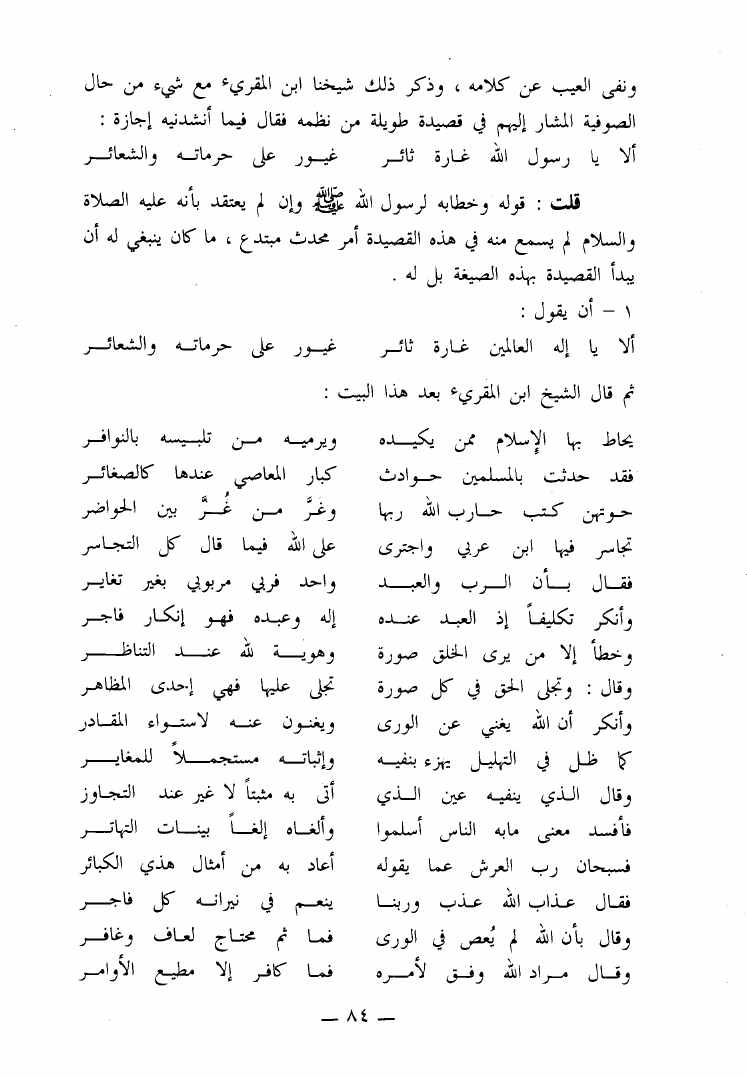 ونفى العيب عن كلامه ، وذكر ذلك شيخنا ابن المقريء مع شيء من حال
الصوفية المشار إليهم في قصيدة طويلة من نظمه فقال فيما أنشدنيه إجازة :
ألا يا رسول الله غارة ثائر غيور على حرماته والشعائر
قلت : قوله وخطابه لرسول الله ﷺ وإن لم يعتقد بأنه عليه الصلاة
والسلام لم يسمع منه في هذه القصيدة أمر محدث مبتدع ، ما كان ينبغي له أن
يبدأ القصيدة بهذه الصيغة بل له .
١ – أن يقول :
ألا يا إله العالمين غارة ثائر غيور على حرماته والشعائر
ثم قال الشيخ ابن المقريء بعد هذا البيت :
يحاط بها الإسلام ممن يكيده ويرميه من تلبيسه بالنوافر
فقد حدثت بالمسلمين حوادث كبار المعاصي عندها كالصغائر
حوتهن كتب حارب الله ربها وغرَّ من غُرَّ بين الحواضر
تجاسر فيها ابن عربي واجترى على الله فيما قال كل التجاسر
فقال بأن الرب والعبد واحد فربي مربوبي بغير تغاير
وأنكر تكليفاً إذ العبد عنده إله وعبده فهو إنكار فاجر
وخطأ إلا من يرى الخلق صورة وهوية لله عند التناظر
وقال : وتجلى الحق في كل صورة تجلى عليها فهي إحدى المظاهر
وأنكر أن الله يغني عن الورى ويغنون عنه لاستواء المقادر
كما ظل في التهليل يهزء بنفيه وإثباته مستجملاً للمغاير
وقال الذي ينفيه عين الذي أتى به مثبتاً لا غير عند التجاوز
فأفسد معنى مابه الناس أسلموا وألغاه إلغاً بينات التهاتر
فسبحان رب العرش عما يقوله أعاد به من أمثال هذي الكبائر
فقال عذاب الله عذب وربنا ينعم في نيرانه كل فاجر
وقال بأن الله لم يُعص في الورى فما ثم محتاج لعاف وغافر
وقال مراد الله وفق لأمره فما كافر إلا مطيع الأوامر
— ٨٤ —